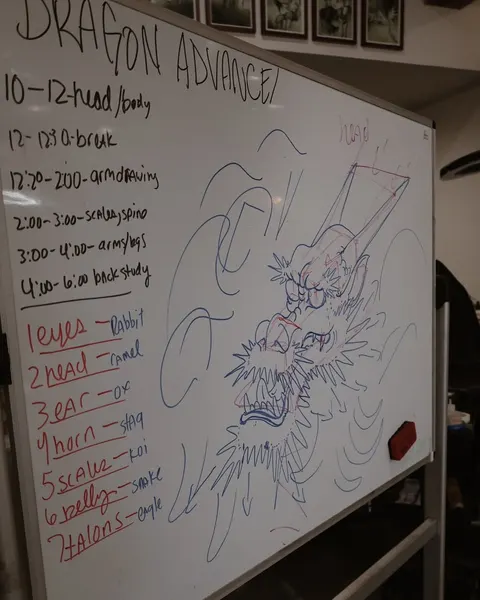 DRAGON ADVANCE/
10-12-head/body
12-12:30-break
12:30-2:00-arm drawing
2:00-3:00-scales, spine
3:00-4:00-arms/legs
4:00-6:00 back study
1 eyes - Rabbit
2 head - camel
3 ear - ox
4 horn - stag
5 scales - koi
6 belly - snake
7 talons - eagle